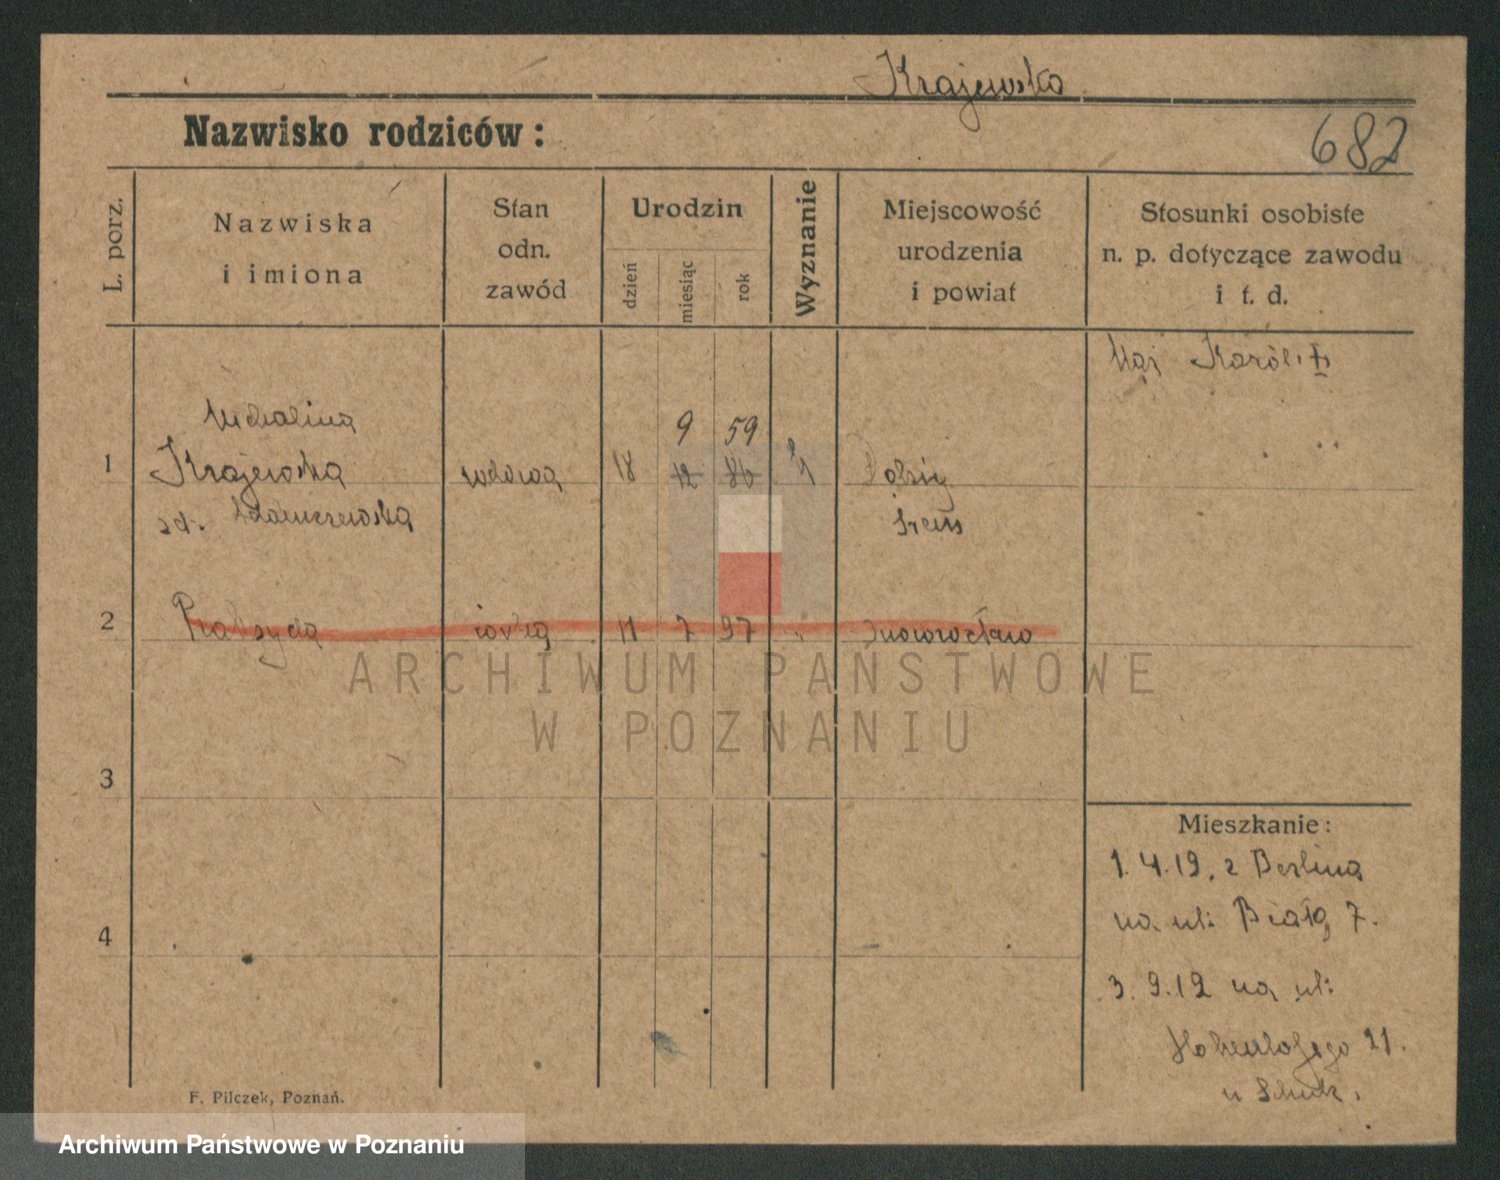 Krajewska
Nazwisko rodziców:
682
L. porz.
Nazwiska
i imiona
Stan
odn.
zawód
Urodzin
dzień
miesiąc
rok
Wyznanie
Miejscowość
urodzenia
i powiat
Stosunki osobiste
n. p. dotyczące zawodu
i t. d.
Mąż Karól †
Michalina
9 59
1 Krajewska wdowa 18 12 86 Dolzig
zd. Adamczewska Śrem
2 Praksyda córka 11 7 97 " Inowrocław
ARCHIWUM PAŃSTWOWE
W POZNANIU
3
4
Mieszkanie:
1.4.19. z Berlina
na ul: Białą 7.
3.9.19 na ul:
21.
u
F. Pilczek, Poznań.
Archiwum Państwowe w Poznaniu